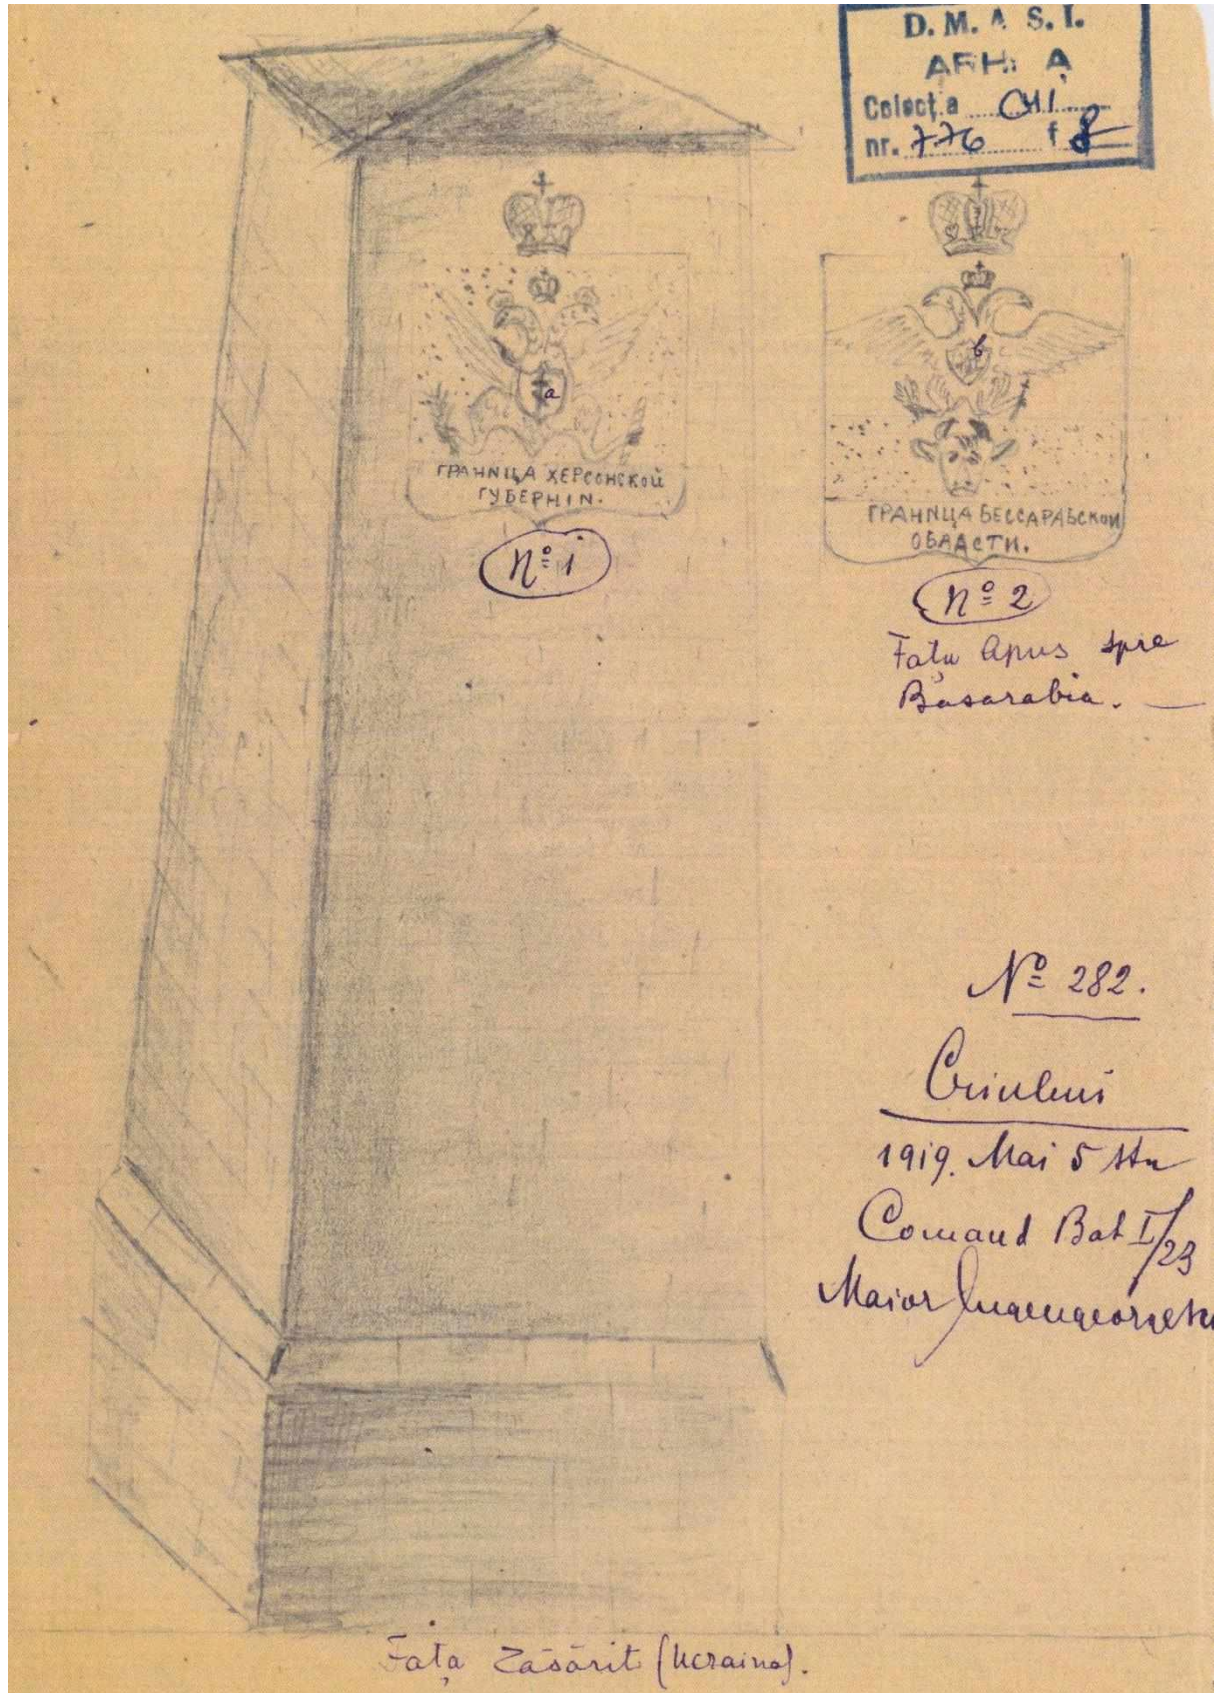 D. M. A S. I.
ARHI A
Colecția CMI
nr. 776 f 8
a
ГРАНИЦА ХЕРСОНСКОЙ
ГУБЕРНІИ.
Nº 1
b
ГРАНИЦА БЕССАРАБСКОЙ
ОБЛАСТИ.
Nº 2
Fața Apus spre
Basarabia. —
Nº 282.
Criuleni
1919. Mai 5 stn
Comand Bat I/23
Maior
Fața Răsărit (Ucraina).